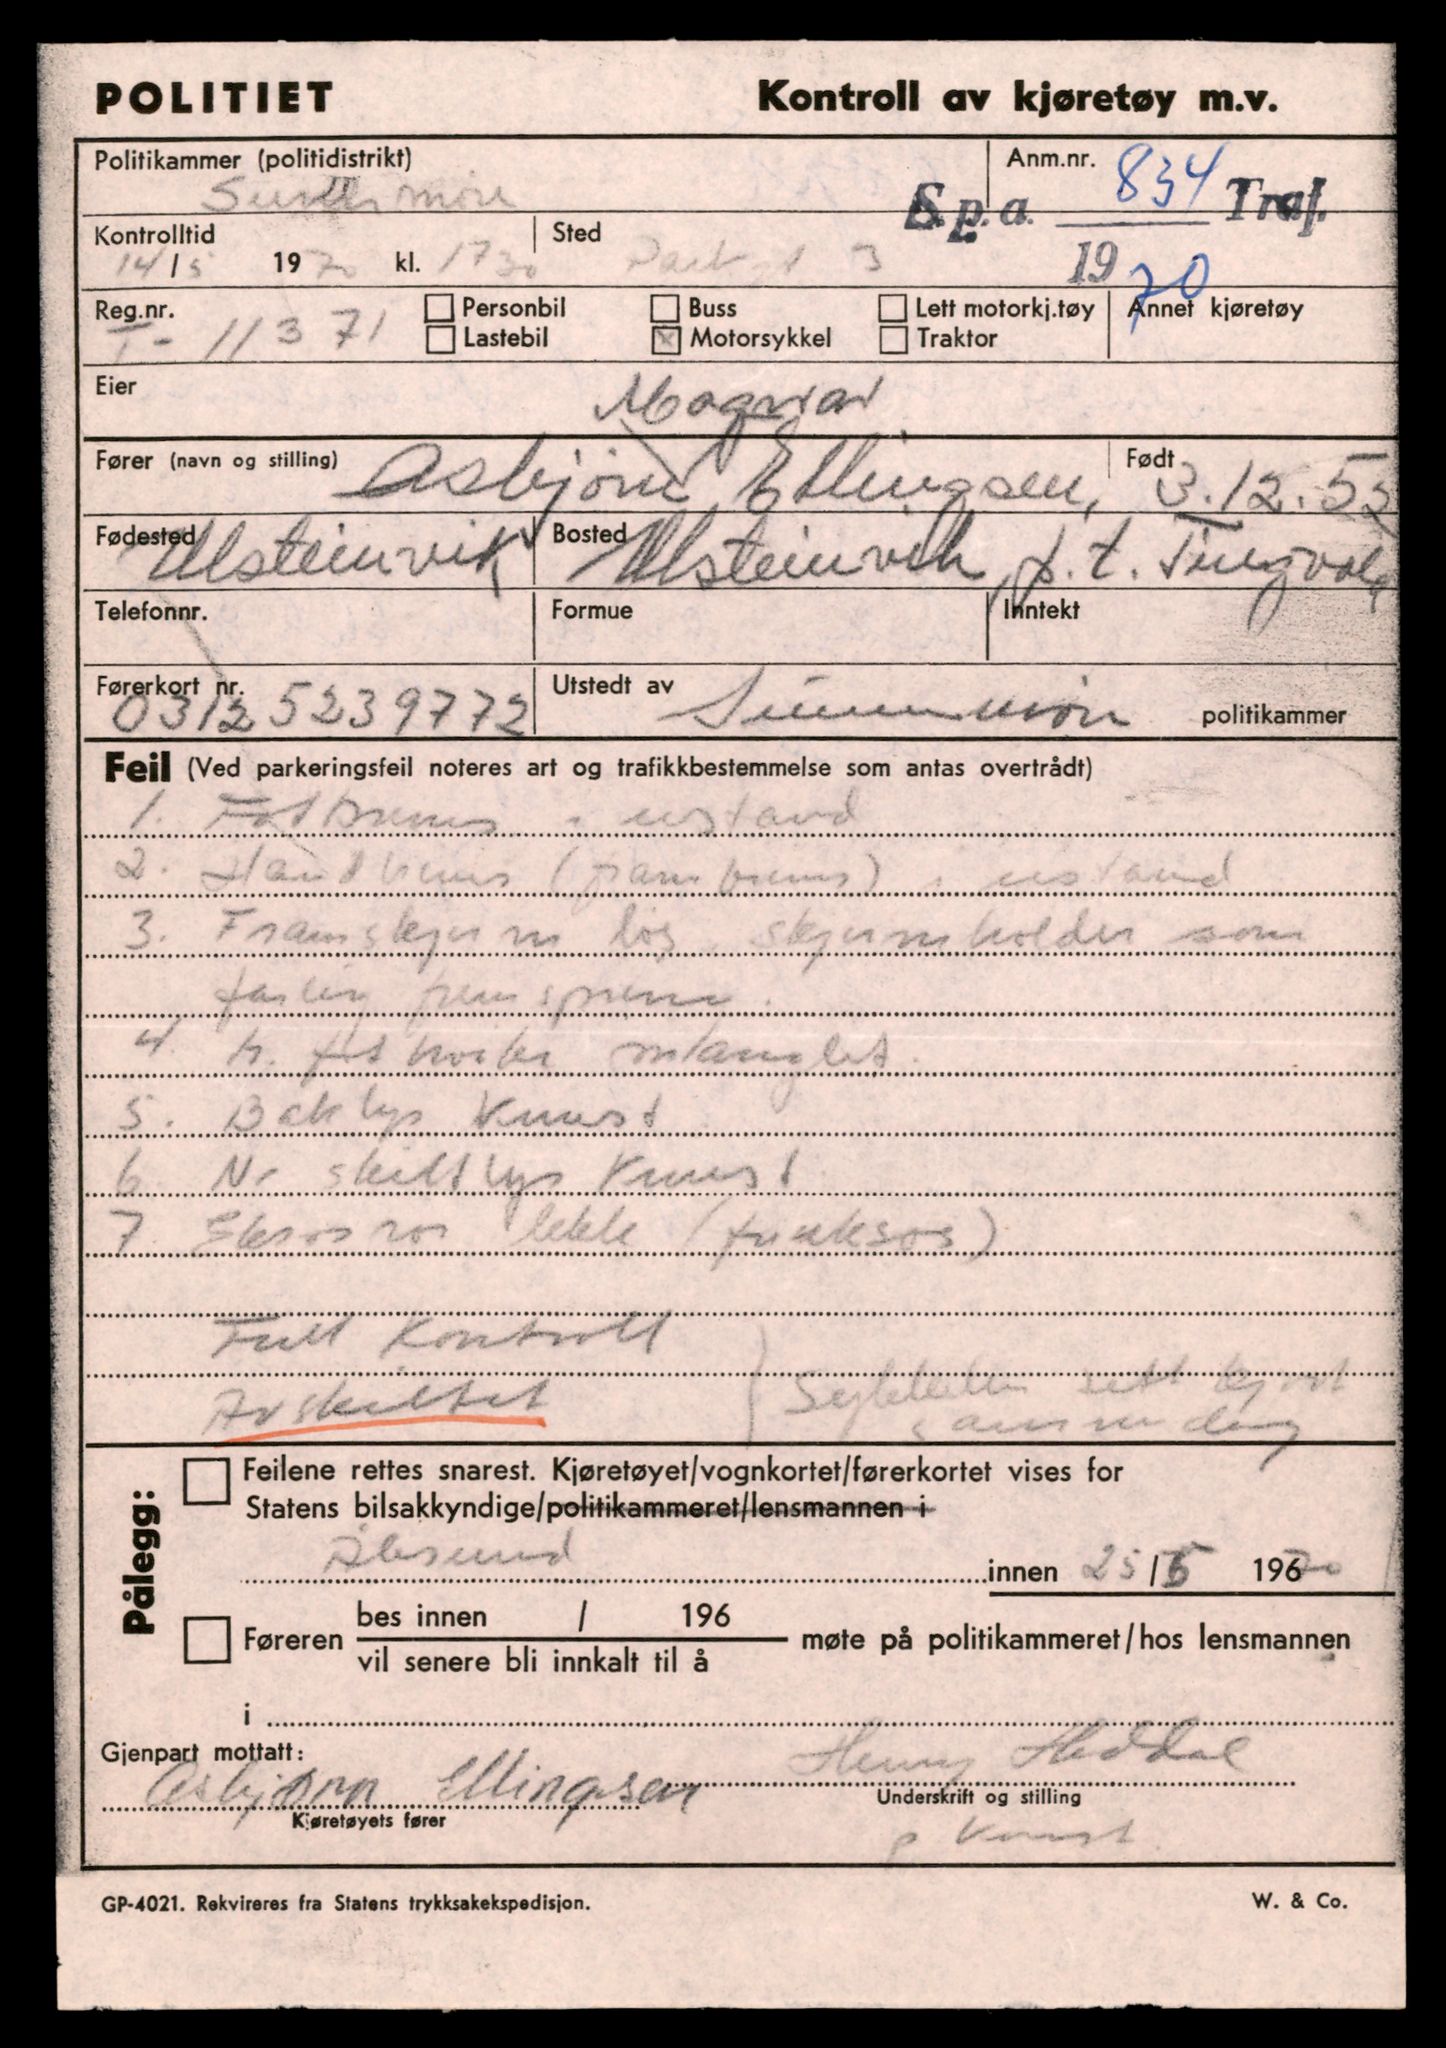 POLITIET Kontroll av kjøretøy m.v.
Politikammer (politidistrikt) Anm.nr. 834
Sunnmøre S.p.a. Traf.
Kontrolltid Sted
14/5 1970 kl. 1730 3 1970
Reg.nr. Personbil Buss Lett motorkj.tøy Annet kjøretøy
T- 11371 Lastebil Motorsykkel Traktor
Eier
Magnar
Fører (navn og stilling) Født
Asbjørn Ellingsen, 3.12.52
Fødested Bosted
Ulsteinvik Ulsteinvik p.t. Tingvoll
Telefonnr. Formue Inntekt
Førerkort nr. Utstedt av
03125239772 Sunnmøre politikammer
Feil (Ved parkeringsfeil noteres art og trafikkbestemmelse som antas overtrådt)
1. Fotbrems i ustand
2. Handbrems (frambrems) i ustand
3. Framskjerm løs, skjermholder som
farlig framspring.
4. h. fothviler manglet.
5. Baklys knust
6. Nr skiltlys knust
7. Eksosrør lekk
Full kontroll
Avskiltet Sykkelen sett kjørt
samme dag
Pålegg:
Feilene rettes snarest. Kjøretøyet/vognkortet/førerkortet vises for
Statens bilsakkyndige/politikammeret/lensmannen i
Ålesund innen 25/5 19670
bes innen / 196
Føreren møte på politikammeret/hos lensmannen
vil senere bli innkalt til å
i
Gjenpart mottatt: Henry Heddal
Asbjørn Ellingsen
Kjøretøyets fører Underskrift og stilling
p konst.
GP-4021. Rekvireres fra Statens trykksakekspedisjon. W. & Co.